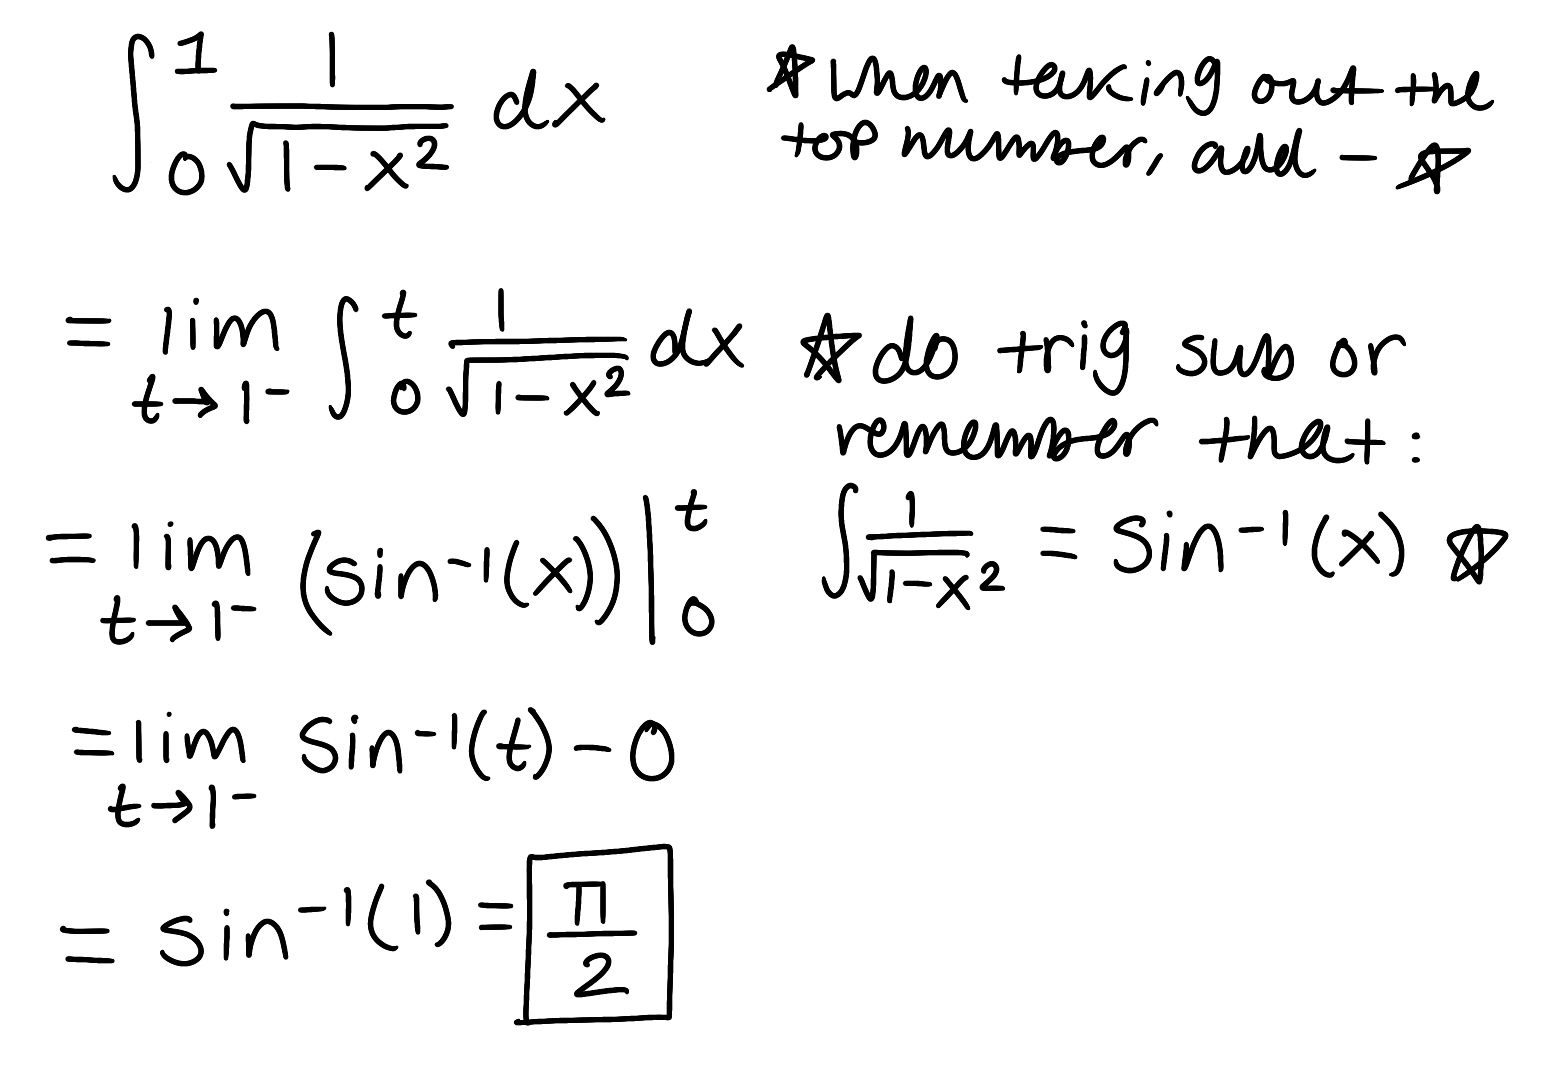 ∫₀¹ 1/√(1-x²) dx
☆ when taking out the
top number, add - ☆
= lim t→1⁻ ∫₀ᵗ 1/√(1-x²) dx
☆ do trig sub or
remember that:
∫ 1/√(1-x²) = sin⁻¹(x) ☆
= lim t→1⁻ (sin⁻¹(x)) |₀ᵗ
= lim t→1⁻ sin⁻¹(t) - 0
= sin⁻¹(1) = π/2